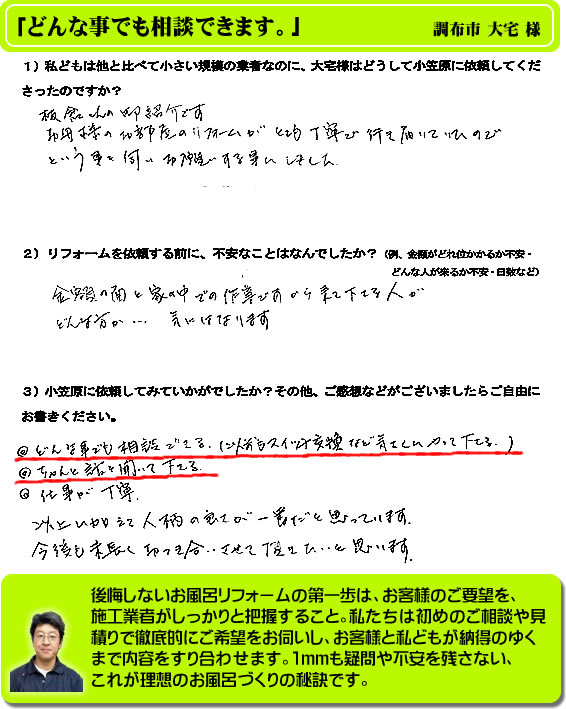 「どんな事でも相談できます。」 調布市 大宅 様
1）私どもは他と比べて小さい規模の業者なのに、大宅様はどうして小笠原に依頼してくだ
さったのですか？
板倉さんの御紹介です
お母様のお部屋のリフォームがとても丁寧で行き届いていたので
という事を伺いお願いする事にしました
2）リフォームを依頼する前に、不安なことはなんでしたか？（例、金額がどれ位かかるか不安・
どんな人が来るか不安・日数など）
金額の面と家の中での作業ですから来て下さる人が
どんな方か… 気にはなります
3）小笠原に依頼してみていかがでしたか？その他、ご感想などがございましたらご自由に
お書きください。
◎どんな事でも相談できる。（以前もスイッチ交換など気さくにやって下さる。）
◎ちゃんと話を聞いて下さる。
◎仕事が丁寧。
人柄の良さが一番だと思っています。
今後も末長くお付き合いさせて頂きたいと思います。
後悔しないお風呂リフォームの第一歩は、お客様のご要望を、
施工業者がしっかりと把握すること。私たちは初めのご相談や見
積りで徹底的にご希望をお伺いし、お客様と私どもが納得のゆく
まで内容をすり合わせます。1mmも疑問や不安を残さない、
これが理想のお風呂づくりの秘訣です。